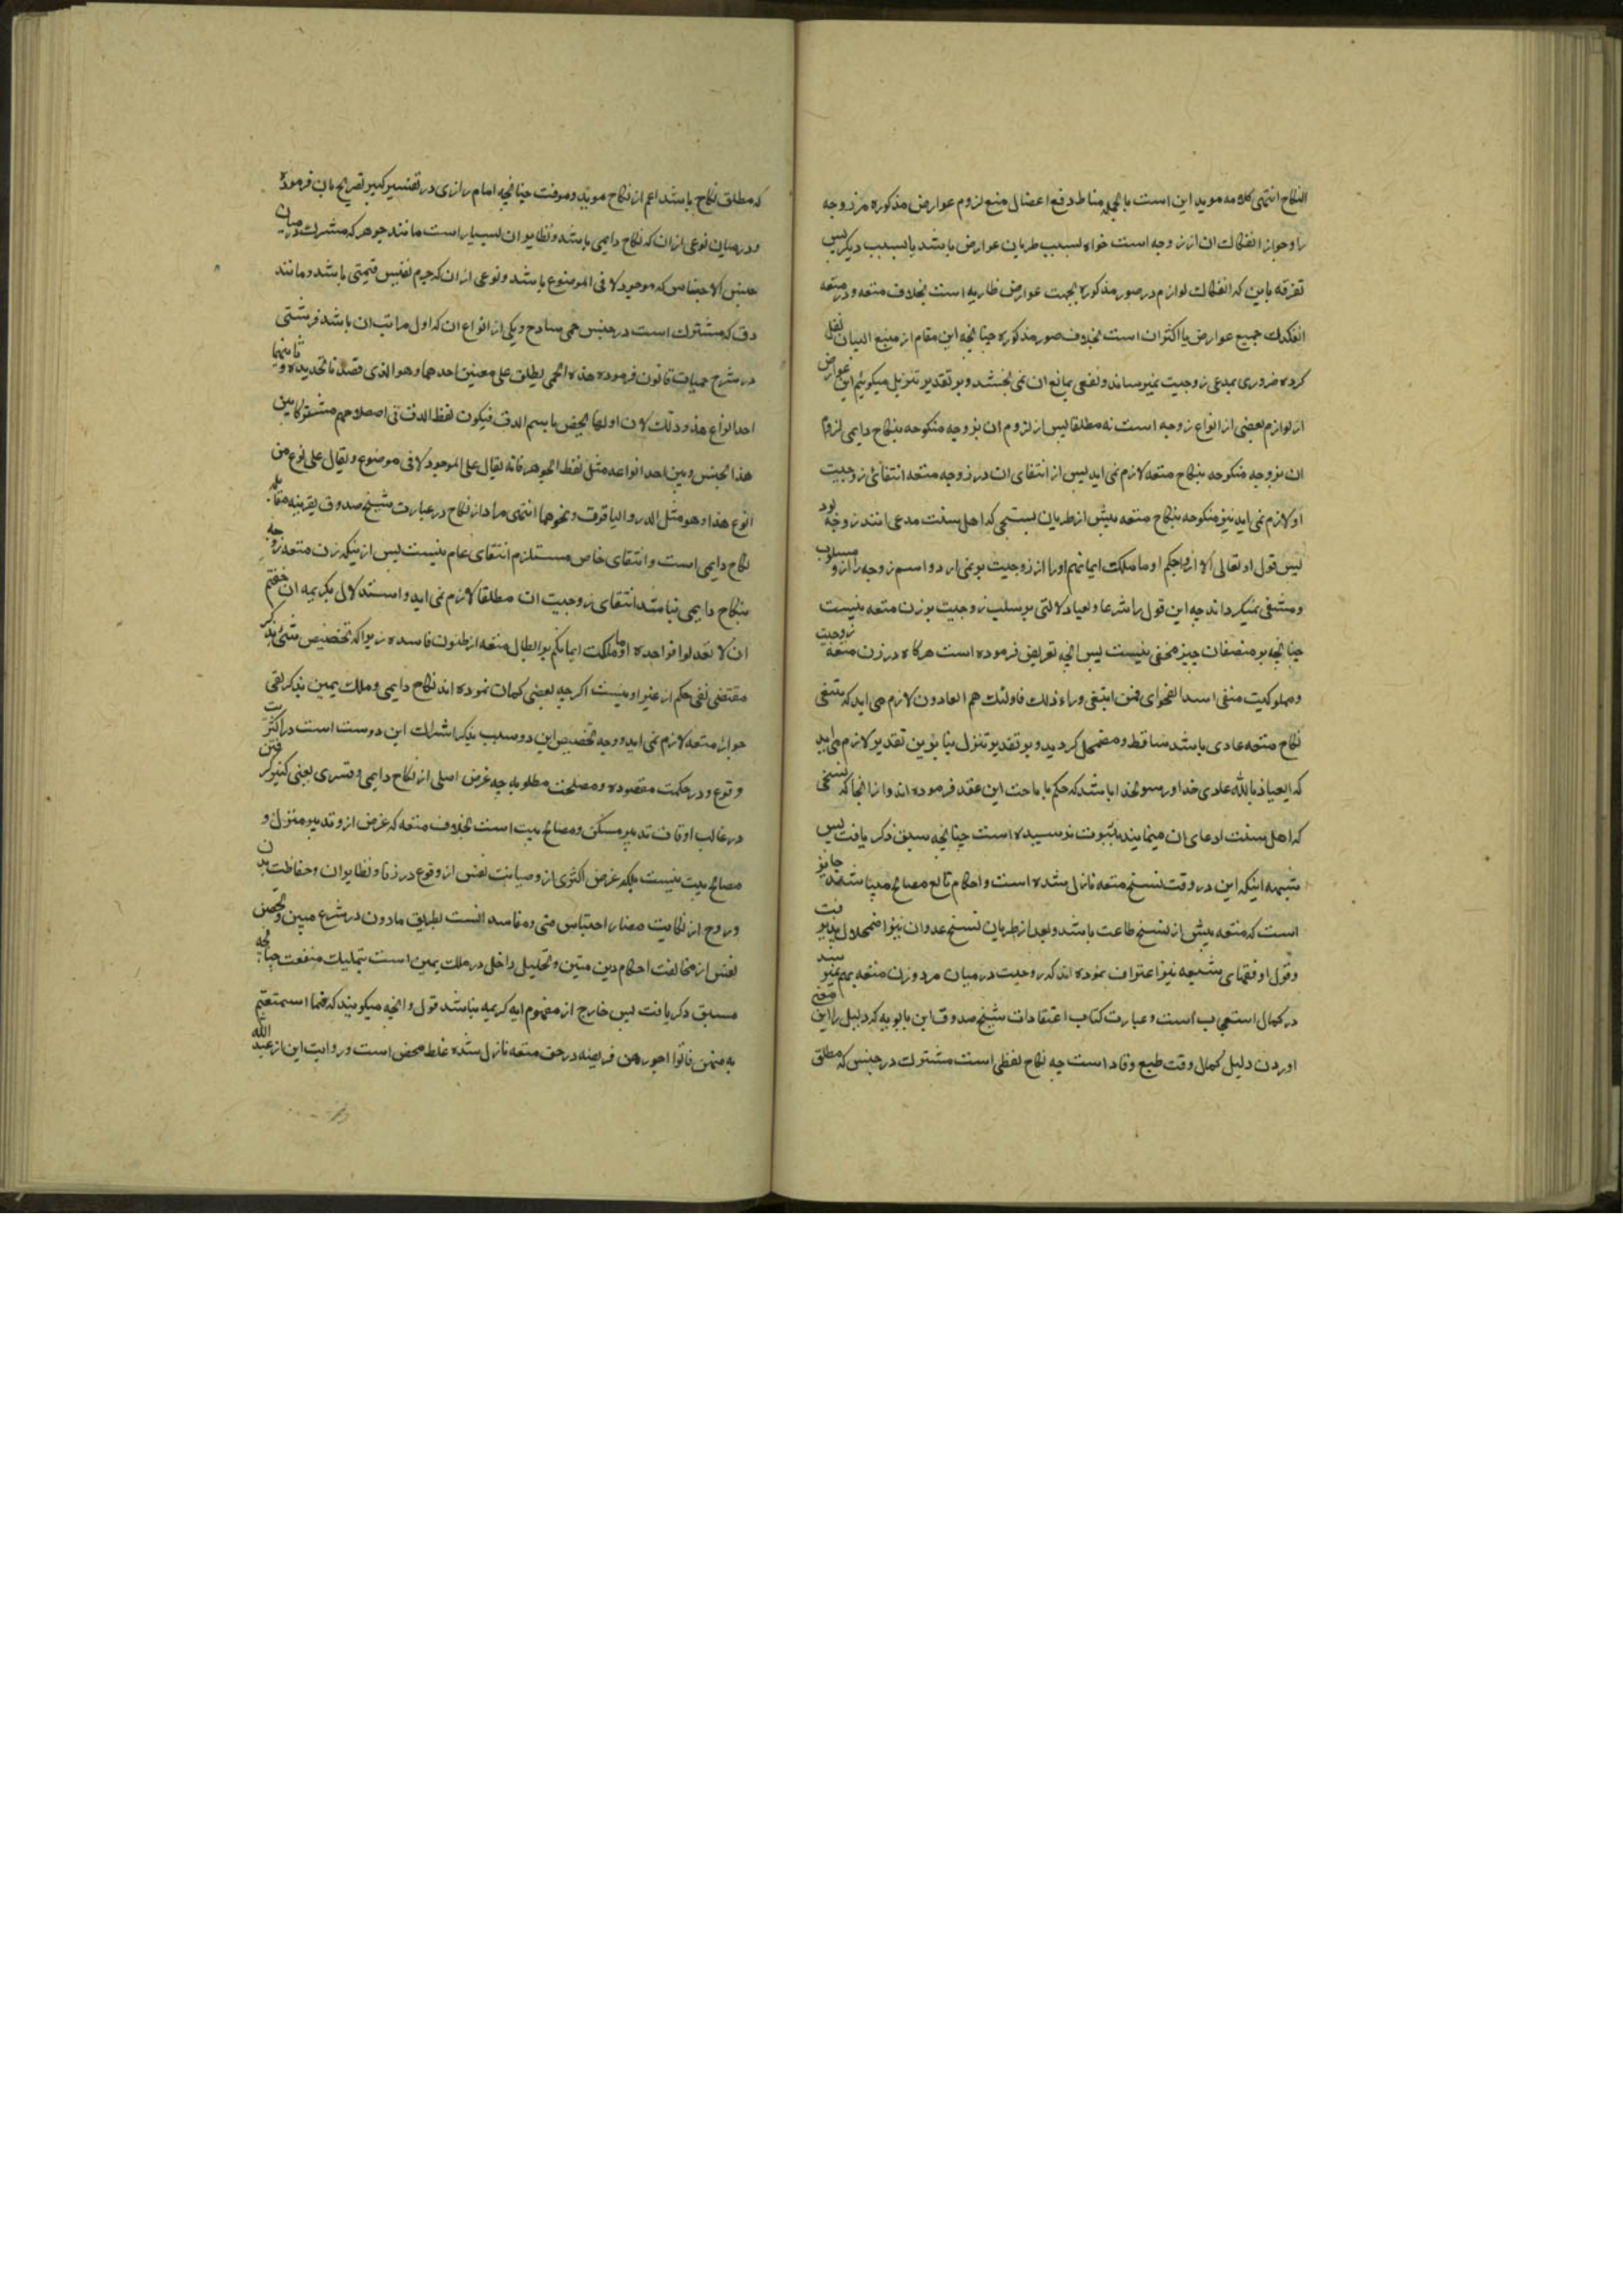 النکاح انتهی کلامه موید این است بالجمله مناط دفع اعضال منع لزوم عوارض مذکوره مر زوجه
را و جواز انفکاک ان از زوجه است خواه بسبب طریان عوارض باشد یا بسبب دیکر پس
تفرقه باین که انفکاک لوازم در صور مذکوره بجهت عوارض طاریه است بخلاف متعه و در متعه
انفکاک جمیع عوارض یا اکثر ان است بخلاف صور مذکوره چنانچه این مقام از منبع البیان نقل
کرده ضروری بمدعی زوجیت نمیرساند و نفعی بمانع ان نمی بخشد و بر تقدیر تنزیل میکوئیم این عوارض
از لوازم بعضی از انواع زوجه است نه مطلقا پس از لزوم ان بزوجه منکوحه بنکاح دایمی لزوم
ان بزوجه منکوحه بنکاح متعه لازم نمی اید پس از انتفای ان در زوجه متعه انتفائ زوجیت
او لازم نمی اید نیز منکوحه بنکاح متعه پیش از طریان نسخی که اهل سنت مدعی انند زوجه بود
پس قول او تعالی الا ازواجکم او ما ملکت ایمانهم او را از زوجیت بر نمی ارد و اسم زوجه را از و مسلوب
و منتفی نمیکرداند چه این قول را شرعا و لغیا دلالتی بر سلب زوجیت بر زن متعه نیست
چنانچه بر منصفان چیز مخفی نیست پس انچه تعریض فرموده است هرکاه در زن متعه زوجیت
و مملوکیت منفی اسد الفحوای فمن ابتغی وراء ذلک فاولئک هم العادون لازم می اید که مبتغی
نکاح متعه عادی باشد ساقط و مضمحل کردید و بر تقدیر تنزل بنا برین تقدیر لازم می اید
که العیاذ بالله عادی خدا و رسول خدا باشد که حکم باباحت این عقد فرموده اند و از انجا که نسخی
که اهل سنت ادعای ان مینمایند بثبوت نرسیده است چنانچه سبق ذکر یافت پس
شبهه اینکه این در وقت نسخ متعه نازل شده است و احکام تابع مصالح میباشد جایز
است که متعه پیش از نسخ طاعت باشد و بعد از طریان نسخ عدوان نیز اضمحلال پذیرفت
و قول او فقهای شیعه نیز اعتراف نموده اند که زوجیت در میان مرد و زن متعه بهم نمیرسد
در کمال استعجاب است و عبارت کتاب اعتقادات شیخ صدوق ابن بابویه که دلیل را این معنی
اوردن دلیل کمال وقت طبع وقاد است چه نکاح لفظی است مشترک در جنس که مطلق
که مطلق نکاح باشد اعم از نکاح موبد و موقت چنانچه امام رازی در تفسیر کبیر تصریح بان فرموده
و در میان نوعی از ان که نکاح دایمی باشد و نظایر ان بسیار است مانند جوهر که مشترک در میان
جنس الاجناس که موجود لا فی الموضوع باشد و نوعی از ان که جرم نفیس قیمتی باشد و مانند
دق که مشترک است در جنس حمی سادج و یکی از انواع ان که اول مراتب ان باشد قرشی
در شرح حمیات قانون فرموده هذه الحمی یطلق علی معنین احدهما و هو الذی قصد ناتحدیده و ثانیهما
احد انواع هذه و ذلک لان اولها یخص باسم الدق فیکون لفظ الدق فی اصطلاحهم مشترکا بین
هذا الجنس و بین احد انواعه مثل لفظ الجوهر فانه یقال علی الموجود لا فی موضوع و یقال علی نوع من
انوع هذا و هو مثل الدر و الیاقوت و نحوهما انتهی مراد از نکاح در عبارت شیخ صدوق بقرینه مقابله
نکاح دایمی است و انتفای خاص مستلزم انتفای عام نیست پس از نیکه زن متعه زوجه
بنکاح دایمی نباشد انتفای زوجیت ان مطلقا لازم نمی اید و استدلال بکریمه ان خفتم
ان لا تعدلوا فواحده او ما ملکت ایمانکم بر ابطال متعه از ظنون فاسده زیرا که تخصیص شئ بذکر
مقتضی نفی حکم از غیر او نیست اکرچه بعضی کمان نموده اند نکاح دایمی و ملک یمین بذکر نفی
جواز متعه لازم نمی اید و وجه تخصیص این دو سبب بذکر اشراک این دوست است در اکثریت
وقوع و در حکمت مقصوده و مصلحت مطلوبه چه غرض اصلی از نکاح دایمی و تسری یعنی کنیز کرفتن
در غالب اوقات تدبیر مسکن و مصالح بیت است بخلاف متعه که غرض از و تدبیر منزل و
مصالح بیت نیست بلکه غرض اکثری از و صیانت نفس از وقوع در زنا و نظایر ان و حفاظت بدن
و روح از نکایت مضار احتباس منی و مفاسد انست بطریق مادون در شرع مبین و تحصن
نفس از مخالفت احکام دین متین و تحلیل داخل در ملک یمین است بتملیک منفعت چنانچه
مسبق ذکر یافت پس خارج از مفهوم ایه کریمه نباشد قول و انچه میکویند که فما استمتعتم
به منهن فاتوا اجورهن فریضه در حق متعه نازل شده غلط محض است و روایت این از عبد الله